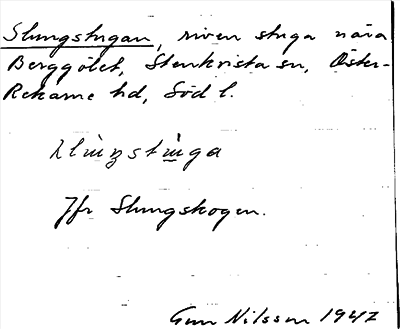 Slungstugan, riven stuga nära
Berggölet, Stenkvista sn, Öster-
Rekarne hd, Söd l.
slùŋstùga
Jfr Slungskogen.
Gun Nilsson 1942